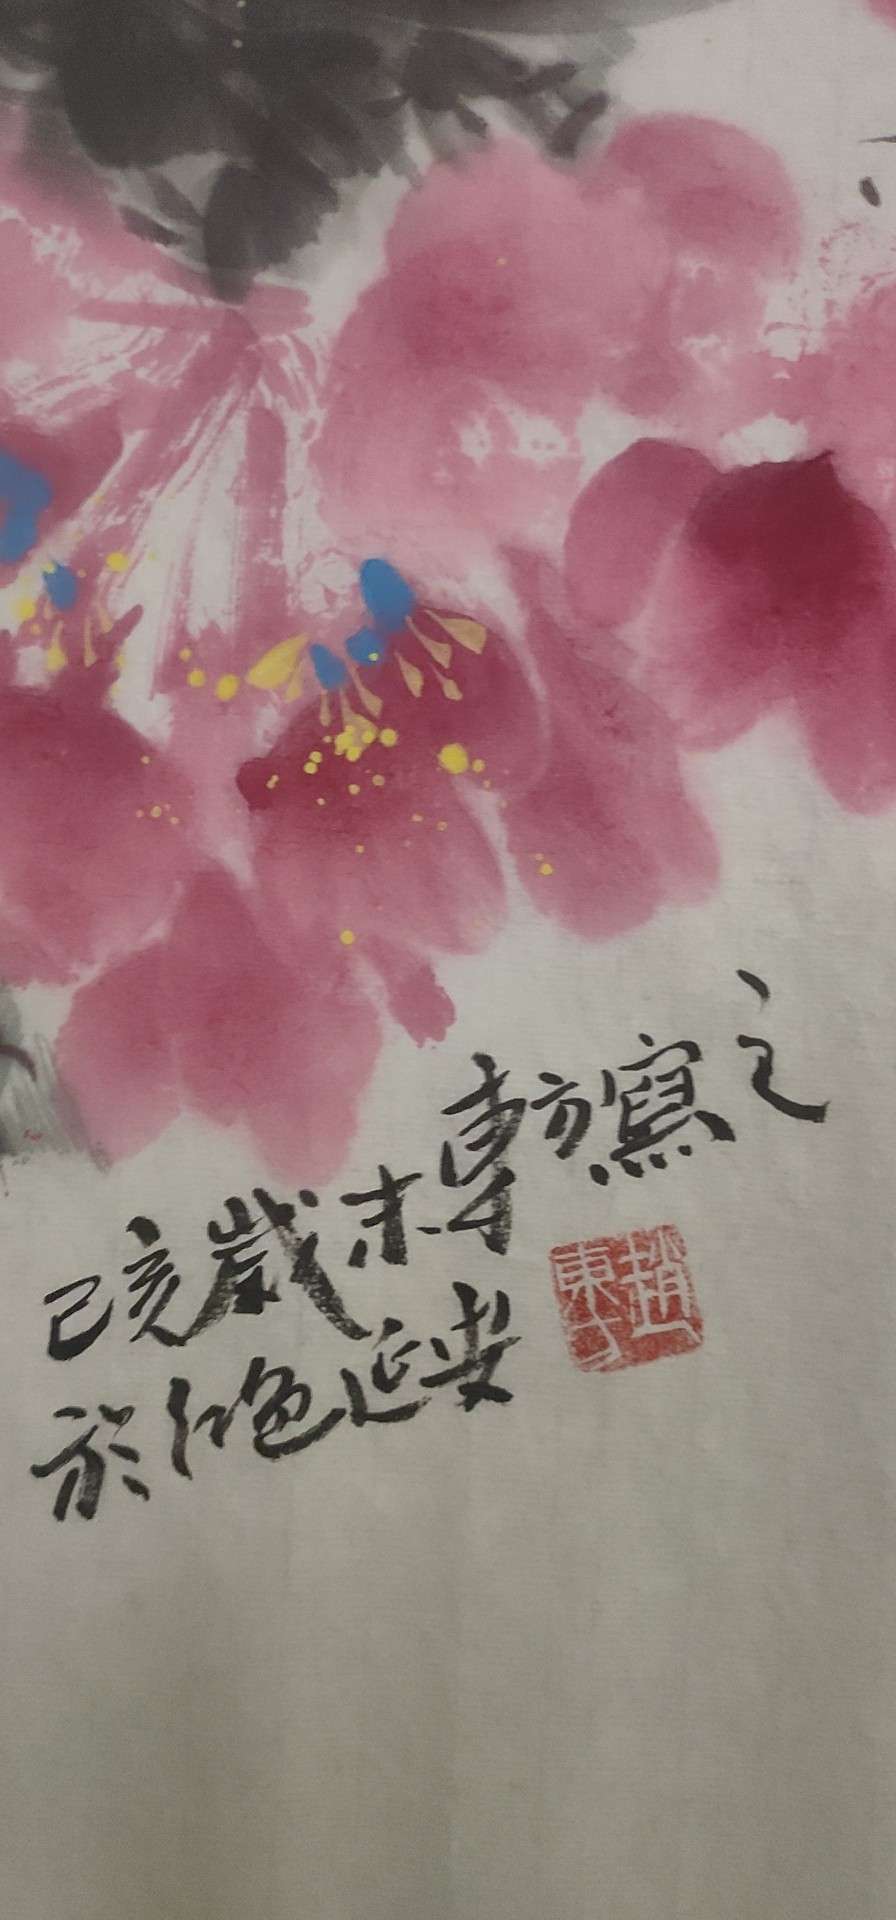 己亥歲末東方寫之
於紅色延安
趙東方